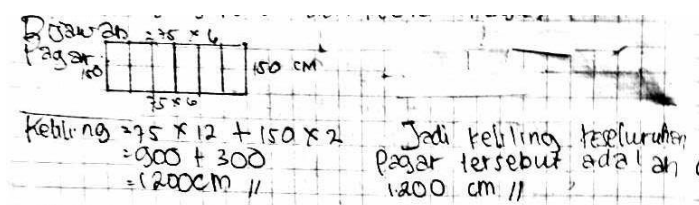 Jawab = 75 × 6
Pagar
150
150 cm
75 × 6
Keliling = 75 × 12 + 150 × 2
= 900 + 300
= 1200 cm //
Jadi keliling keseluruhan
pagar tersebut adalah
1.200 cm //